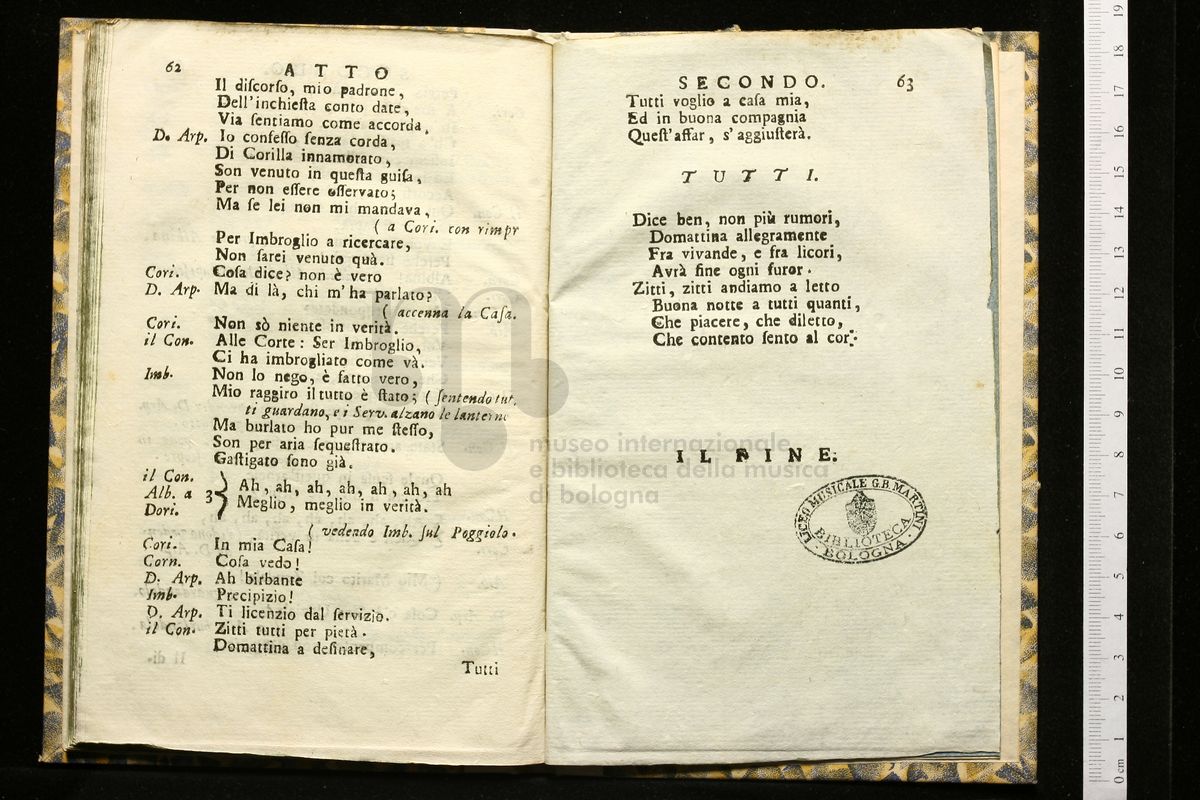 62
ATTO
Il diſcorſo, mio padrone,
Dell'inchieſta conto date,
Via ſentiamo come accorda.
D. Arp. Io confeſſo ſenza corda,
Di Corilla innamorato,
Son venuto in queſta guiſa,
Per non eſſere oſſervato;
Ma ſe lei non mi mandava,
( a Cori. con rimpr
Per Imbroglio a ricercare,
Non ſarei venuto quà.
Cori. Coſa dice? non è vero
D. Arp. Ma di là, chi m'ha parlato?
( accenna la Caſa.
Cori. Non sò niente in verità.
il Con. Alle Corte: Ser Imbroglio,
Ci ha imbrogliato come và.
Imb. Non lo nego, è fatto vero,
Mio raggiro il tutto è ſtato; ( ſentendo tut.
ti guardano, e i Serv. alzano le lanterne
Ma burlato ho pur me ſteſſo,
Son per aria ſequeſtrato.
Gaſtigato ſono già.
il Con.
Alb. a 3 Ah, ah, ah, ah, ah, ah, ah
Dori. Meglio, meglio in verità.
( vedendo Imb. ſul Poggiolo.
Cori. In mia Caſa!
Corn. Coſa vedo!
D. Arp. Ah birbante
Imb. Precipizio!
D. Arp. Ti licenzio dal ſervizio.
il Con. Zitti tutti per pietà.
Domattina a deſinare,
Tutti
SECONDO. 63
Tutti voglio a caſa mia,
Ed in buona compagnia
Queſt'affar, s'aggiuſterà.
TUTTI.
Dice ben, non più rumori,
Domattina allegramente
Fra vivande, e fra licori,
Avrà fine ogni furor.
Zitti, zitti andiamo a letto
Buona notte a tutti quanti,
Che piacere, che diletto,
Che contento ſento al cor.
IL FINE.
museo internazionale
e biblioteca della musica
di bologna
LICEO MUSICALE G.B. MARTINI
BIBLIOTECA
BOLOGNA
19
18
17
16
15
14
13
12
11
10
9
8
7
6
5
4
3
2
1
0 cm